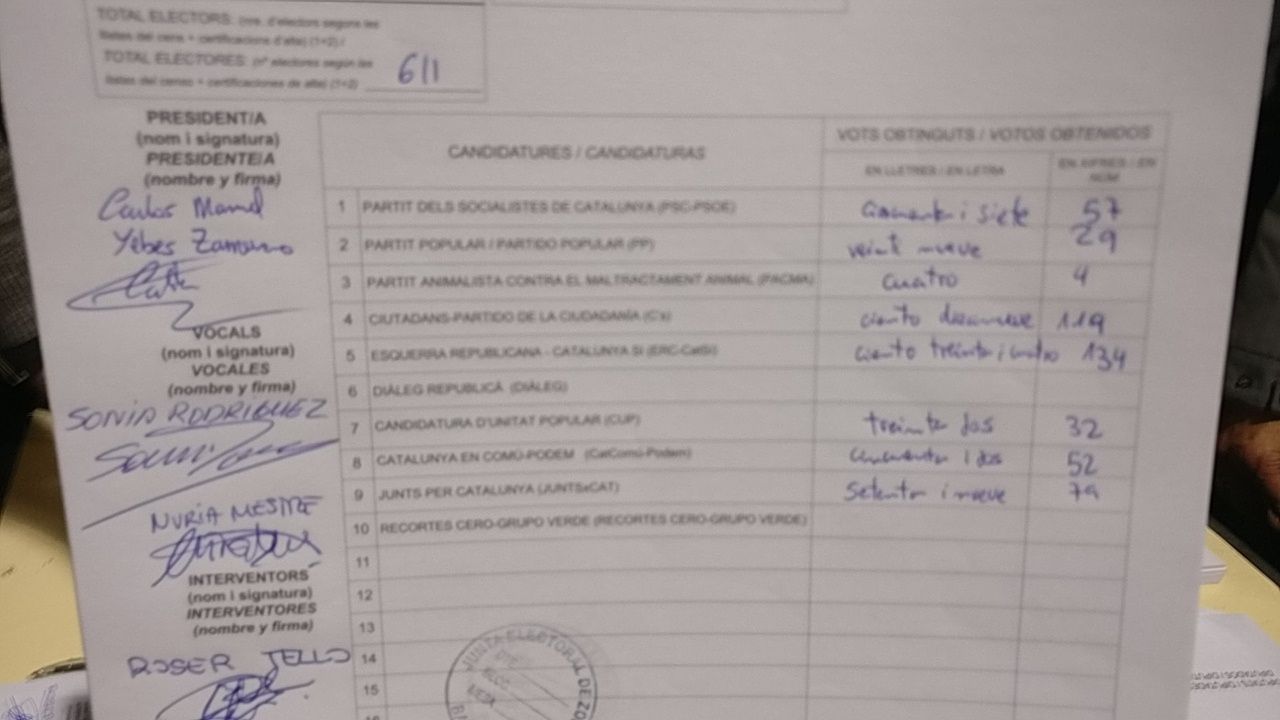 TOTAL ELECTORS: (nre. d'electors segons les
llistes del cens + certificacions d'alta) (1+2) /
TOTAL ELECTORES: (nº electores según las
listas del censo + certificaciones de alta) (1+2) 611
PRESIDENT/A
(nom i signatura)
PRESIDENTE/A
(nombre y firma)
Carlos Manuel
Yebes Zamorano
VOCALS
(nom i signatura)
VOCALES
(nombre y firma)
SONIA RODRIGUEZ
NURIA MESTRE
INTERVENTORS
(nom i signatura)
INTERVENTORES
(nombre y firma)
ROSER TELLO
CANDIDATURES / CANDIDATURAS
VOTS OBTINGUTS / VOTOS OBTENIDOS
EN LLETRES / EN LETRA
EN XIFRES / EN
NÚM
1 PARTIT DELS SOCIALISTES DE CATALUNYA (PSC-PSOE) cincuenta i siete 57
2 PARTIT POPULAR / PARTIDO POPULAR (PP) veinti nueve 29
3 PARTIT ANIMALISTA CONTRA EL MALTRACTAMENT ANIMAL (PACMA) cuatro 4
4 CIUTADANS-PARTIDO DE LA CIUDADANÍA (C's) ciento diecinueve 119
5 ESQUERRA REPUBLICANA - CATALUNYA SÍ (ERC-CatSí) ciento treinta i cuatro 134
6 DIÀLEG REPUBLICÀ (DIÀLEG)
7 CANDIDATURA D'UNITAT POPULAR (CUP) treinta dos 32
8 CATALUNYA EN COMÚ-PODEM (CatComú-Podem) cincuenta i dos 52
9 JUNTS PER CATALUNYA (JUNTSxCAT) Setenta i nueve 79
10 RECORTES CERO-GRUPO VERDE (RECORTES CERO-GRUPO VERDE)
11
12
13
14
15
JUNTA ELECTORAL DE ZO